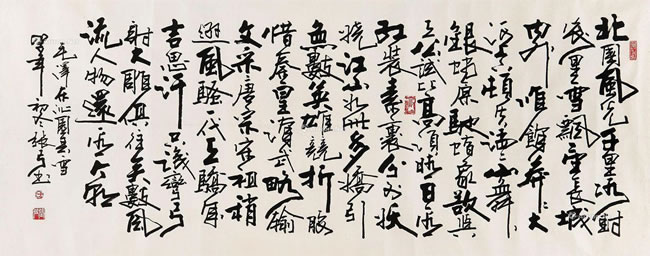 北國風光千里冰封
萬里雪飄望長城
內外惟餘莽莽大
河上下頓失滔滔山舞
銀蛇原馳蠟象欲與
天公試比高須晴日看
紅裝素裹分外妖
嬈江山如此多嬌引
無數英雄競折腰
惜秦皇漢武略輸
文采唐宗宋祖稍
遜風騷一代天驕成
吉思汗只識彎弓
射大雕俱往矣數風
流人物還看今朝
毛澤東沁園春雪
初冬 張 書